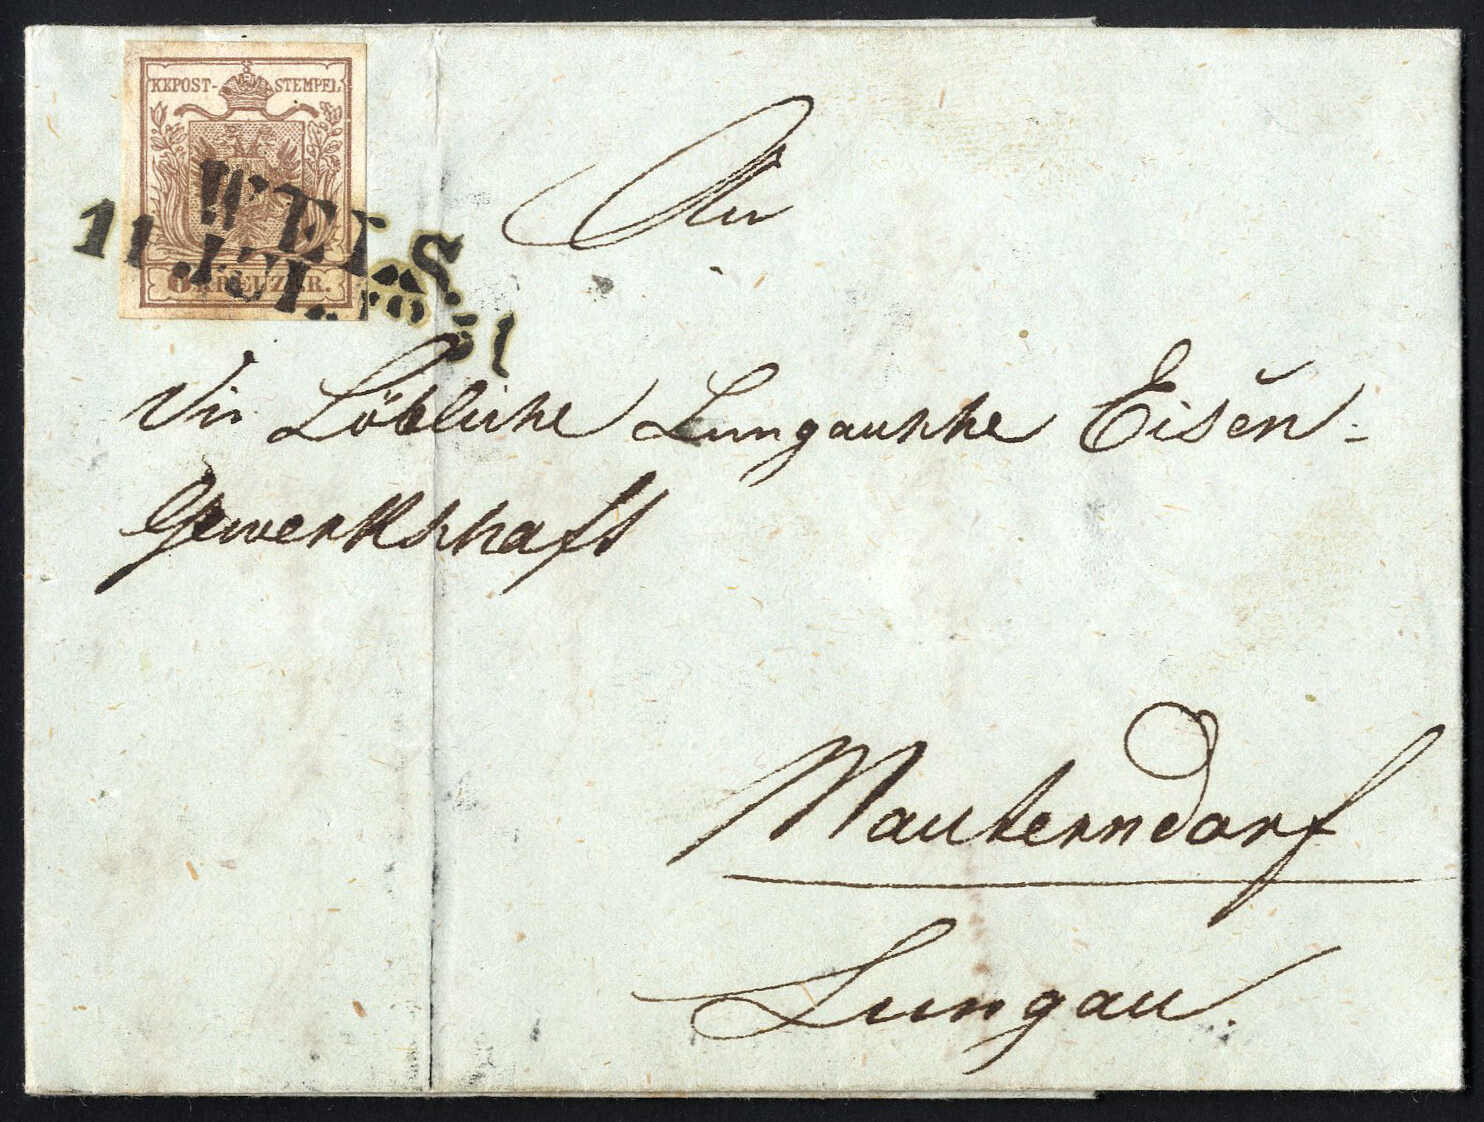 KKPOST-STEMPEL
6 KREUZER.
WELS.
11.JUL.
An
Die Löbliche Lungauische Eisen-
Gewerkschaft
Mauterndorf
Lungau.